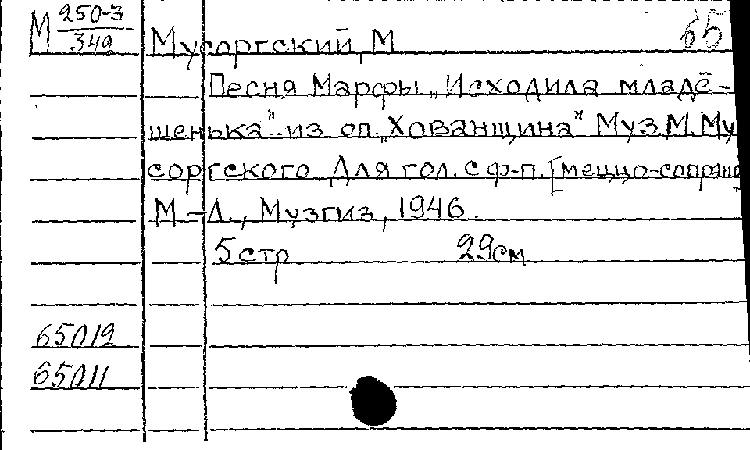 М 250-3/342
65
Мусоргский, М
Песня Марфы „Исходила младё-
шенька" из оп. „Хованщина" Муз. М. Му
соргского. Для гол. с ф-п. [меццо-сопрано
М.-Л., Музгиз, 1946.
5 стр 29 см
65012
65011